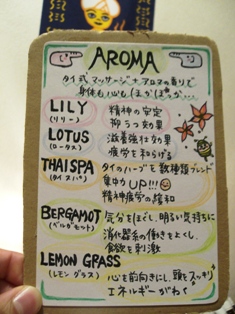 AROMA
タイ式マッサージ+アロマの香りで
身体も心もぽかぽか…
LILY
(リリー)
精神の安定
抑うつ効果
LOTUS
(ロータス)
滋養強壮効果
疲労を和らげる
THAISPA
(タイスパ)
タイのハーブを数種類ブレンド
集中力UP!!!
精神疲労の緩和
BERGAMOT
(ベルガモット)
気分をほぐし、明るい気持ちに
消化器系の働きをよくし、
食欲を刺激
LEMON GRASS
(レモングラス)
心を前向きにし、頭をスッキリ
エネルギーがわく